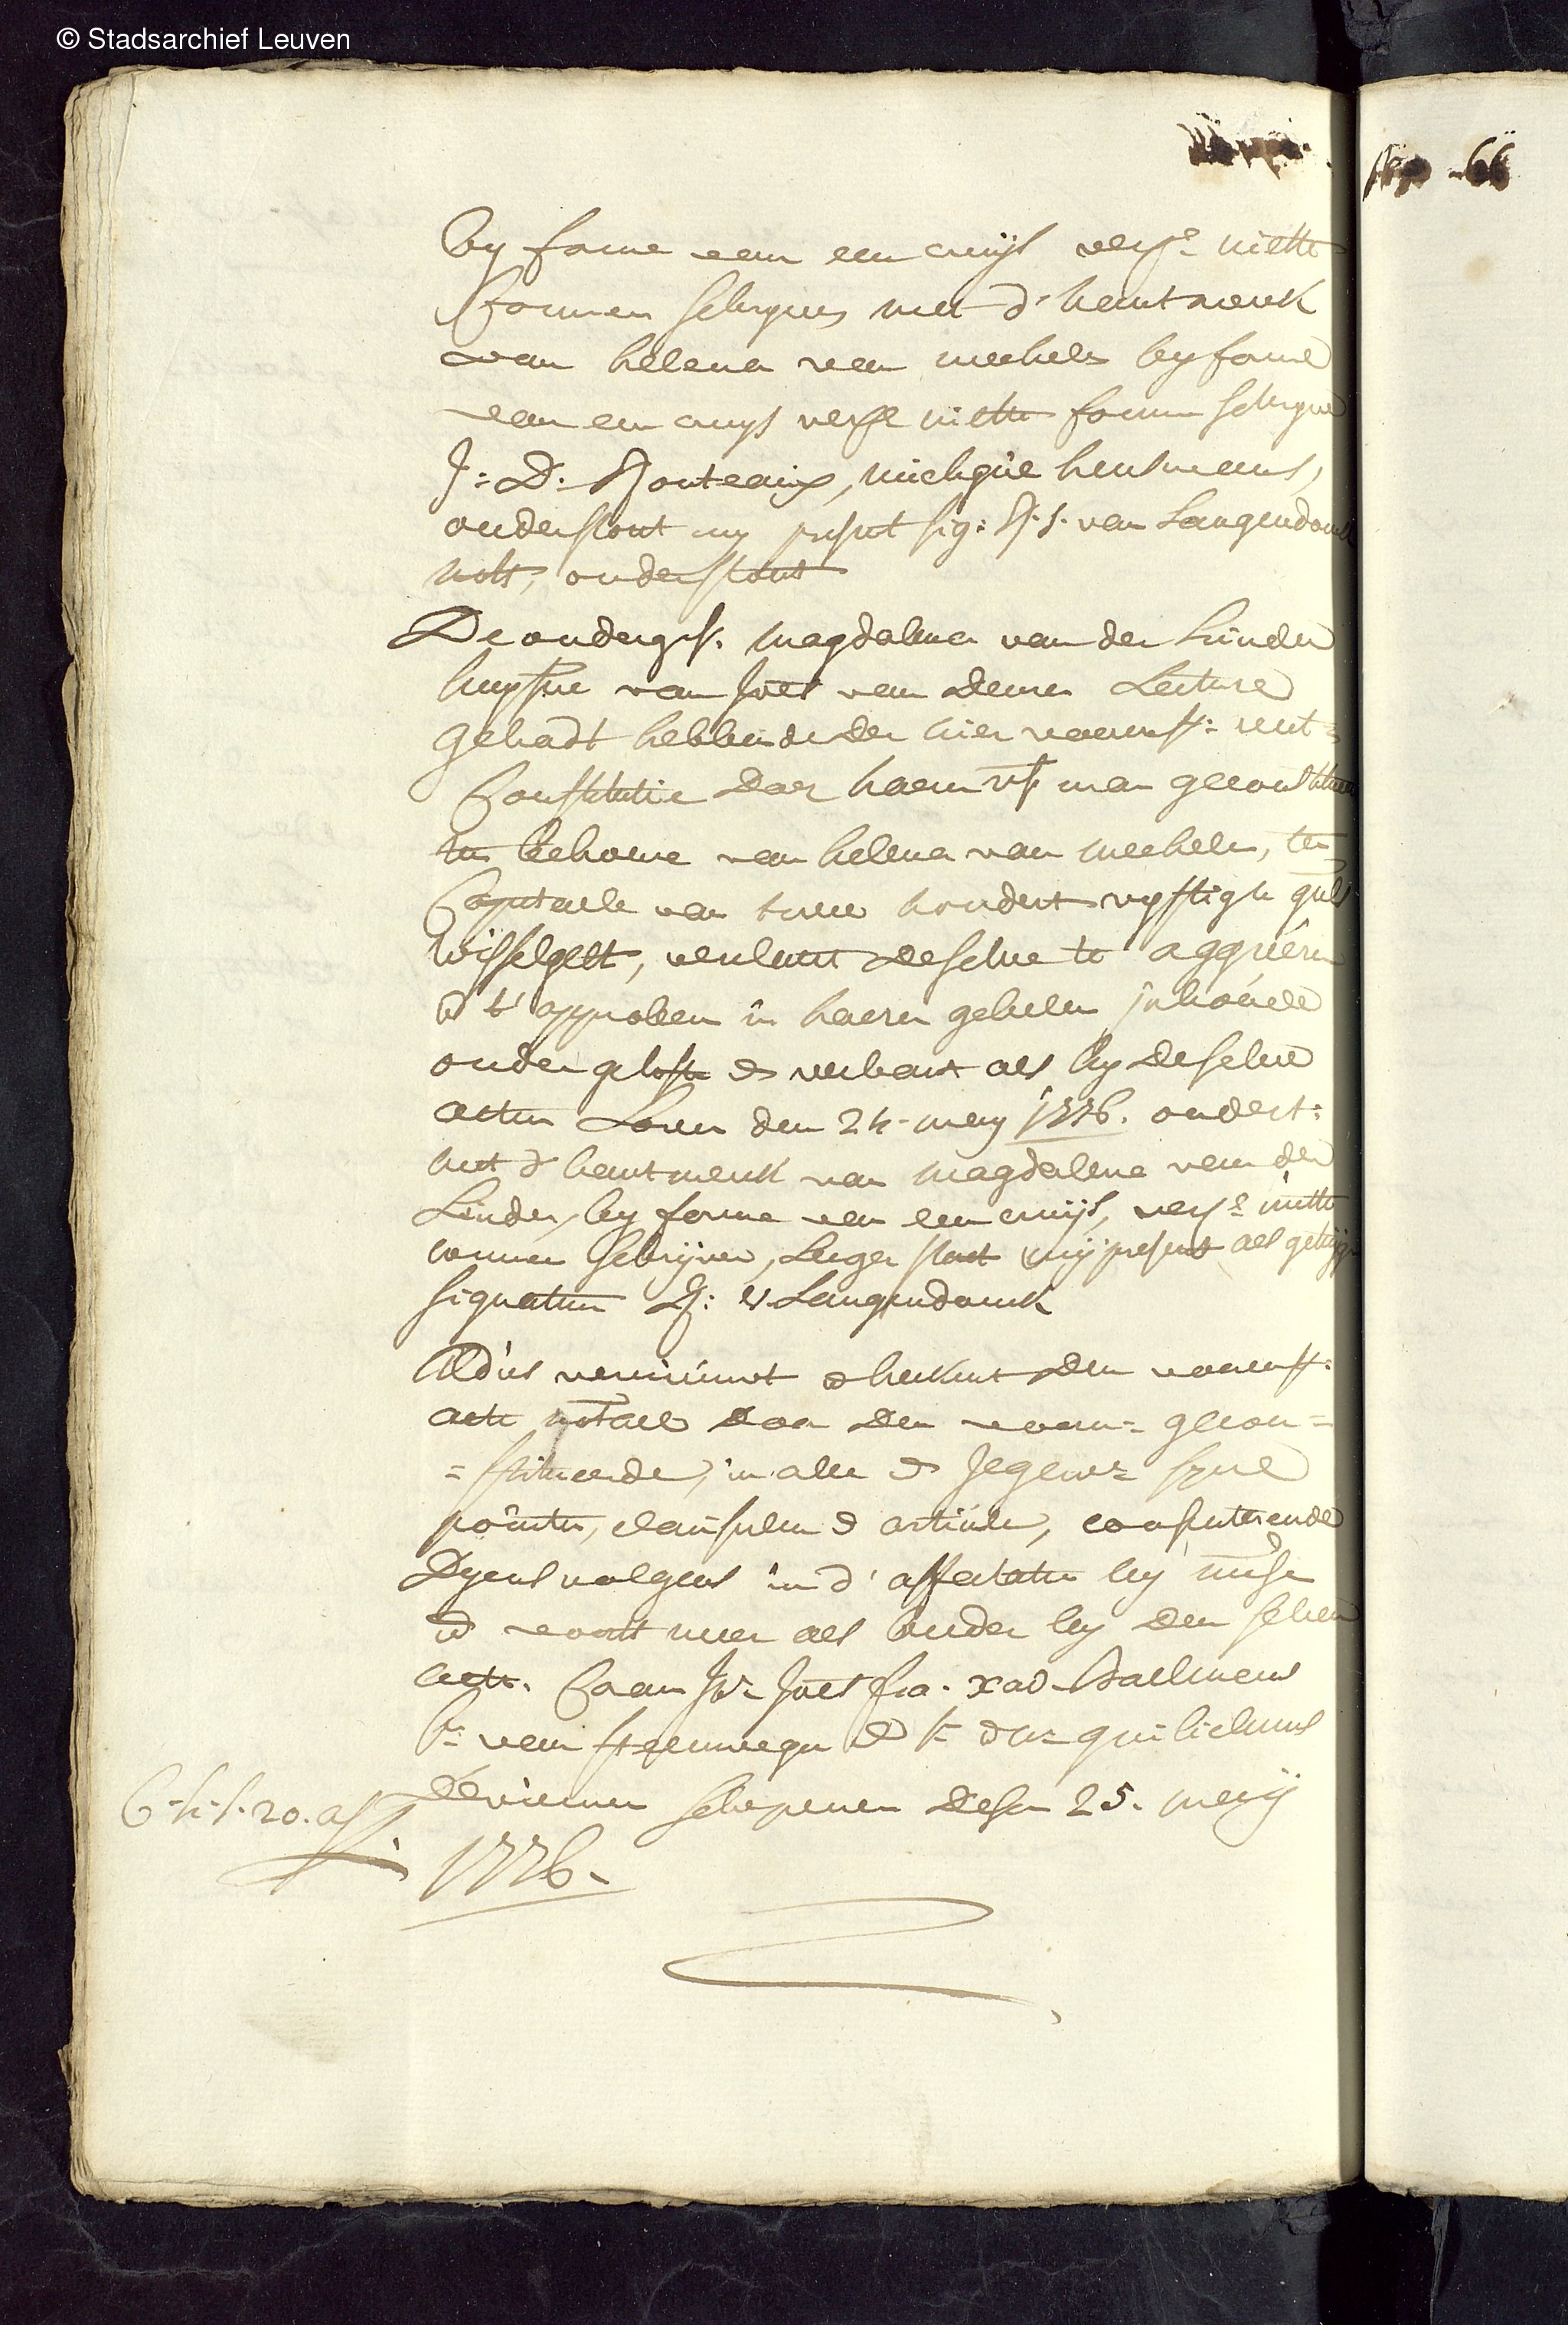 © Stadsarchief Leuven
66
by forme van een cruijs verse niette
connen schryven met d'hantmerk
van helena van mechelen by forme
van een cruys verse niette connen schryven
J: D: Honteaux, michgiel heusmans,
onderstont my present sig: H: J. van Langendonck
nots, onderstont
De onderges. magdalena van der Linden
huysvre van Joes van Deuren Lecture
gehadt hebbende der hier voorenst: rent=
Constitutie door haeren vs man geconstitueert
ten behoeve van helena van mechelen, ten
Capitaele van twee hondert vyftigh guls
wisselgelt, verclaert de selve te aggrieren
en t'approberen in haeren geheelen inhoude
onder gelofte en verbant als by de selve
acten Loven den 24 mey 1776. onderst:
met d'hantmerk van magdalena van der
Linden, by forme van een cruijs, verse niette
connen schrijven, Leeger stont mij present als getuyge
signatum H: v Langendonck
Aldus vernieuwt en herkent den voorenst:
acte notael door den voorn= gecon=
=stitueerde, in alle en jegewe syne
pointen, clausulen en articulen, consenterende
dyens volgens in d'affectatie by misse
en voorts meer als breeder by den selven
acte. Coram Jor Joes fra. xad. Baelmans
Sr van steenwegen en Sr dnr guilielmus
Deviemen schepenen desen 25. meij
1776.
6-h-s-20. as